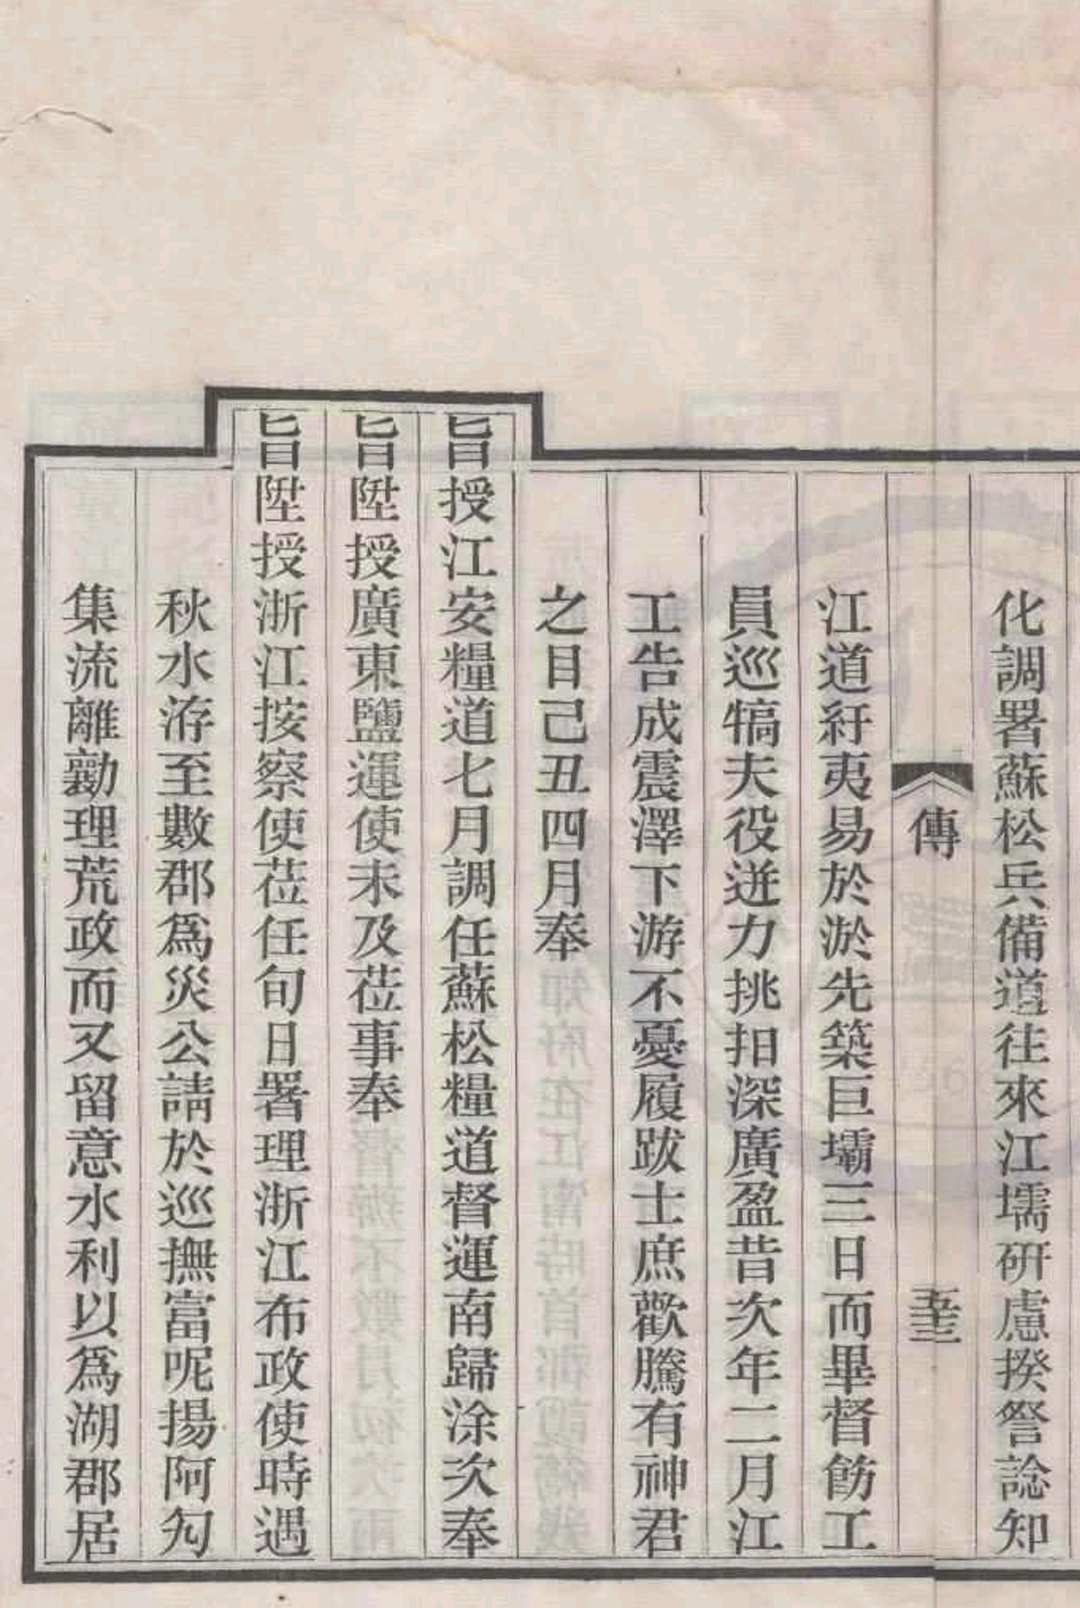 化調署蘇松兵備道往來江壖硏慮揆咎諗知
傳
五十三
江道紆夷易於淤先築巨壩三日而畢督飭工
員巡犒夫役迸力挑抇深廣盈昔次年二月江
工告成震澤下游不憂履跋士庶歡騰有神君
之目己丑四月奉
旨授江安糧道七月調任蘇松糧道督運南歸涂次奉
旨陞授廣東鹽運使未及莅事奉
旨陞授浙江按察使莅任旬日署理浙江布政使時遇
秋水洊至數郡爲災公請於巡撫富呢揚阿勾
集流離勷理荒政而又留意水利以爲湖郡居